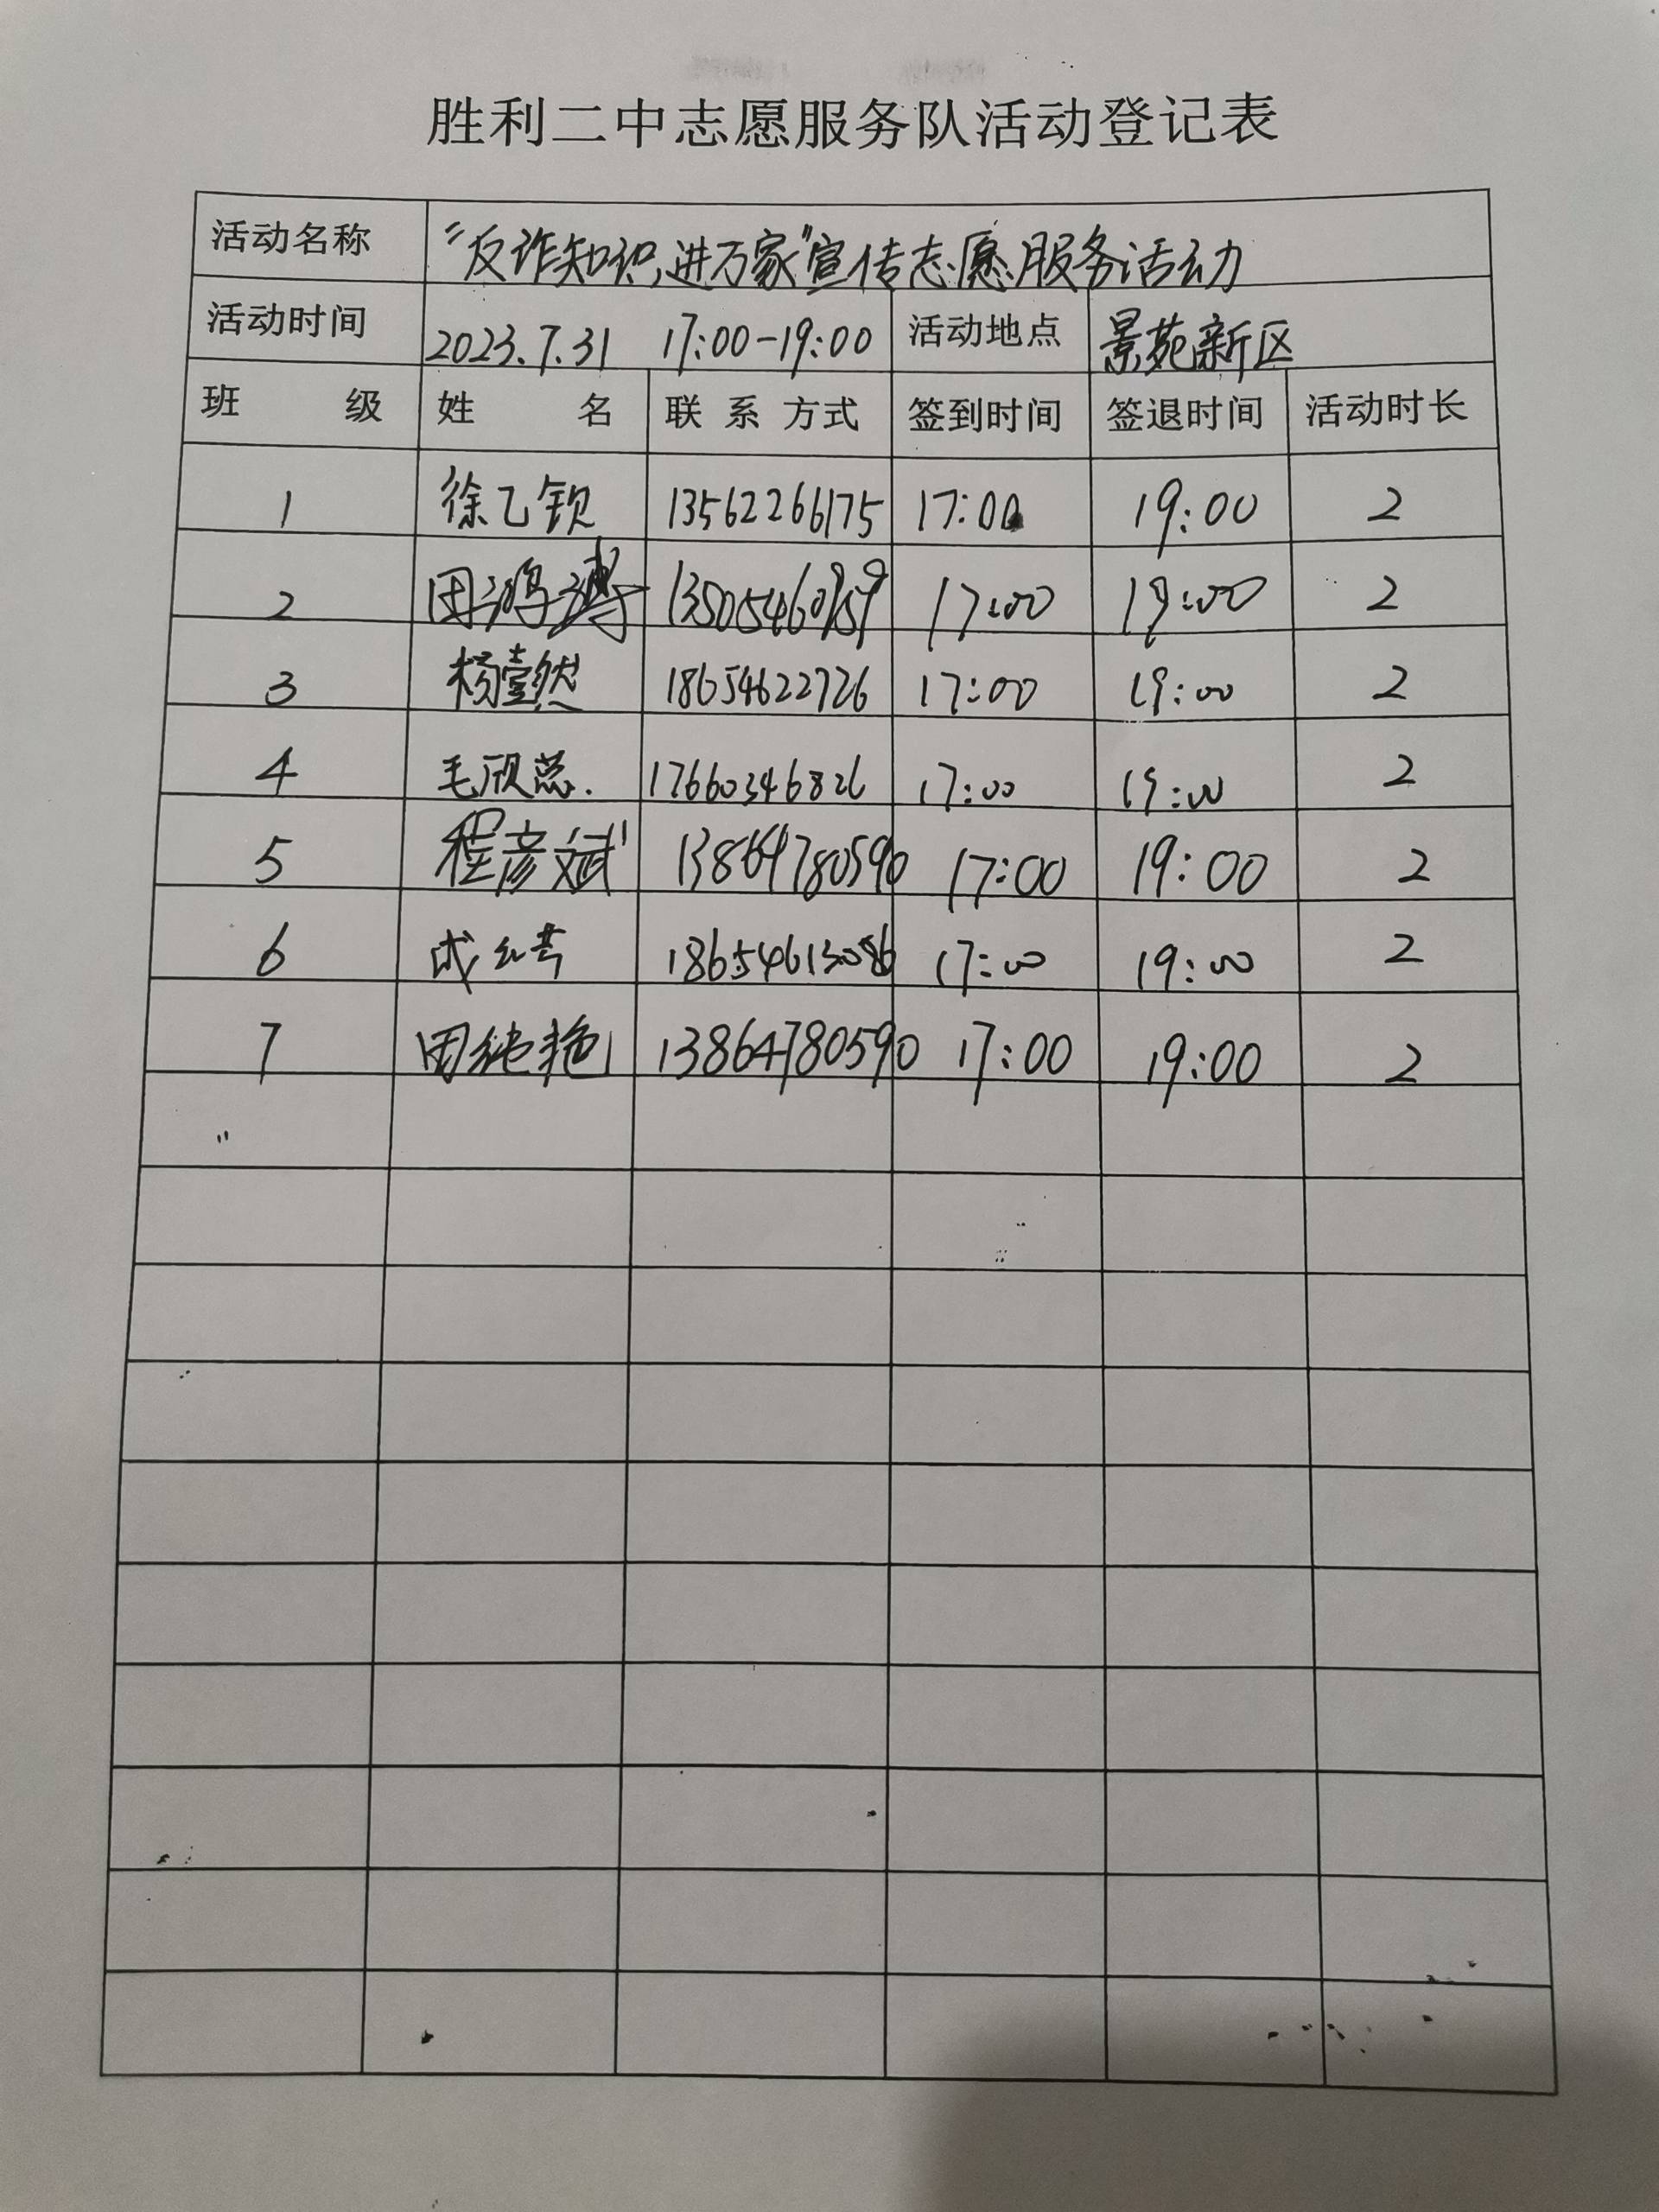 胜利二中志愿服务队活动登记表
活动名称 “反诈知识,进万家”宣传志愿服务活动
活动时间 2023.7.31 17:00-19:00 活动地点 景苑新区
班 级 姓 名 联系方式 签到时间 签退时间 活动时长
1 徐乙钦 13562266175 17:00 19:00 2
2 田鸿博 17:00 19:00 2
3 杨壹然 18654622726 17:00 19:00 2
4 毛欣蕊. 17660346826 17:00 19:00 2
5 程彦斌 13864780590 17:00 19:00 2
6 17:00 19:00 2
7 田纯艳 13864780590 17:00 19:00 2